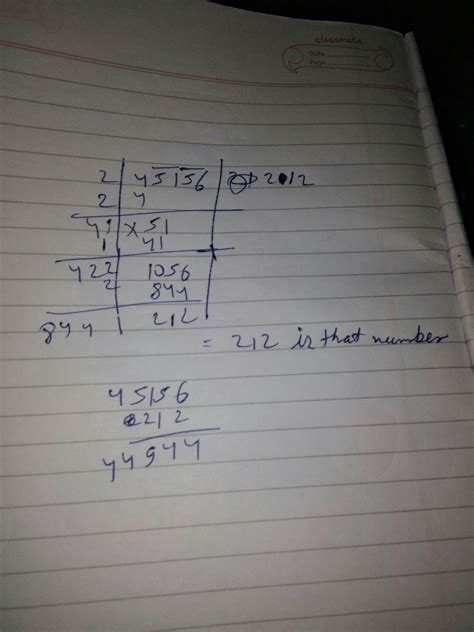 classmate
Date
Page
2 45156 212
2 4
41 ×51
1 41
422 1056
2 844
844 212
= 212 is that number
45156
212
44944